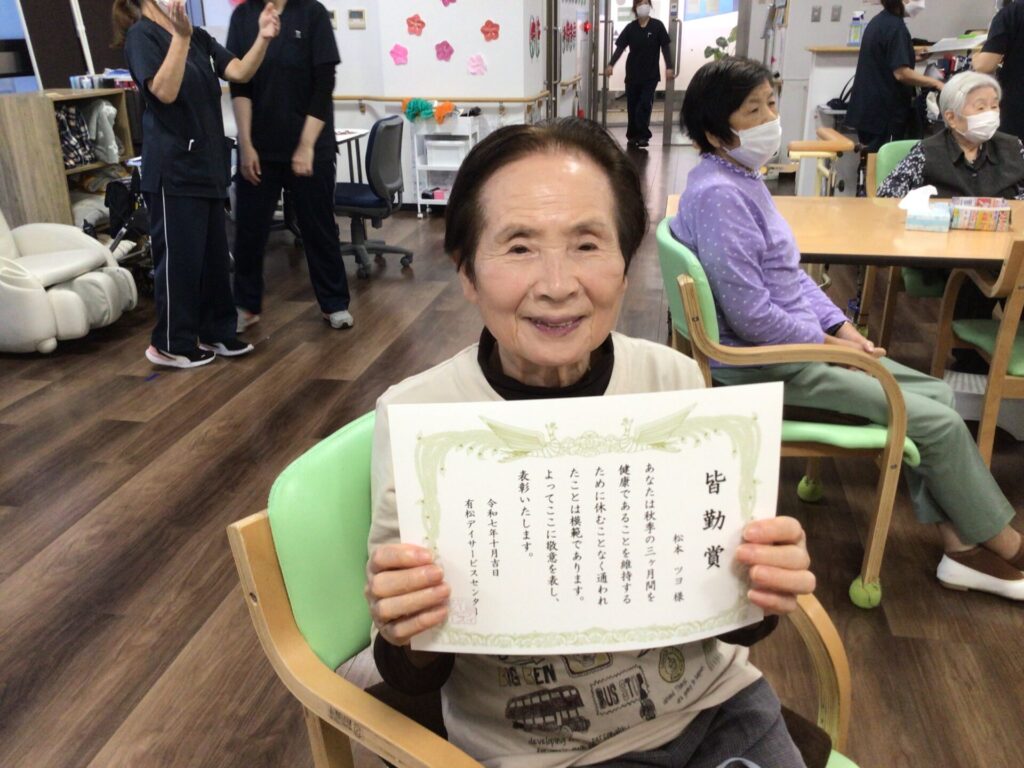 皆勤賞
松本 ツヨ 様
あなたは秋季の三ヶ月間を
健康であることを維持する
ために休むことなく通われ
たことは模範であります。
よってここに敬意を表し、
表彰いたします。
令和七年十月吉日
有松デイサービスセンター
BIG BEN
BUS STOP
developing